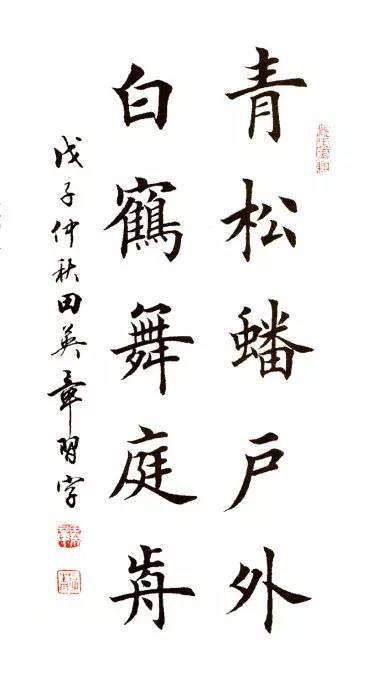 青松蟠戶外
白鶴舞庭歬
戊子仲秋田英章習字